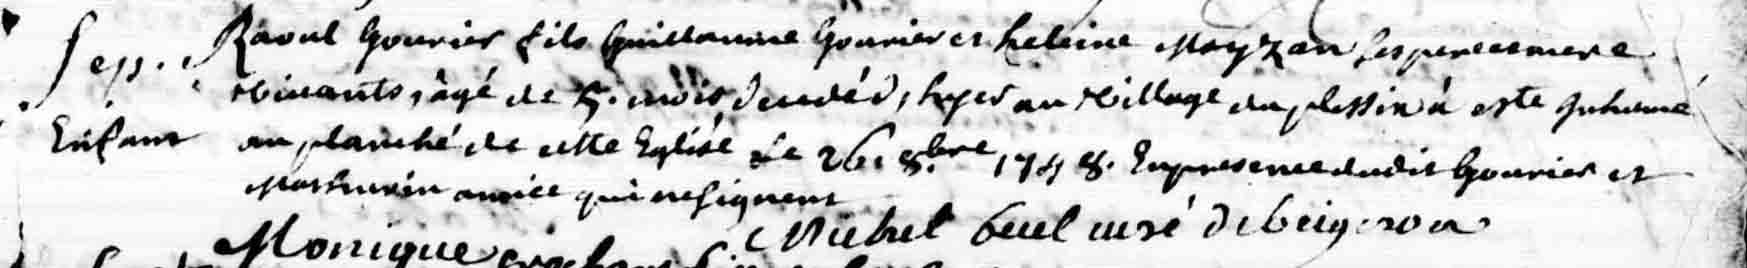 Sep. Raoul Gourier fils Guillaume Gourier et heleine Moyzan ses pere et mere
vivants, âgé de 5. mois decedé d'hyer au village du plessix à este Inhumé
Enfant au planché de cette Eglise Le 26. 8.bre 1748. En presence dudit Gourier et
Mathurin annice qui ne signent
Michel curé de
Monique